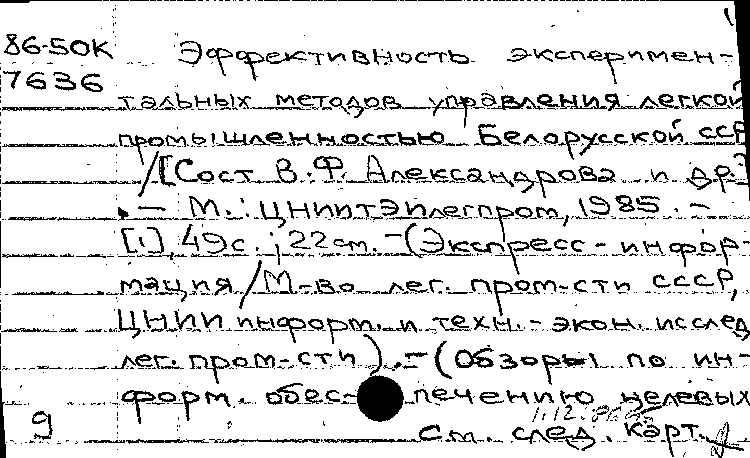 86-50К Эффективность эксперимен-
7636
тальных методов управления легкой
промышленностью Белорусской ССР
/[Сост В.Ф. Александрова и др.]
. — М. : ЦНИИТЭИлегпром, 1985. —
[1], 49с. ; 22см. — (Экспресс-инфор-
мация / М-во лег. пром-сти СССР,
ЦНИИ информ. и техн.-экон. исслед
лег. пром-сти). — (Обзоры по ин-
форм. обеспечению целевых
9 См. след. карт.